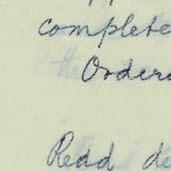 complete
Orders
Read de